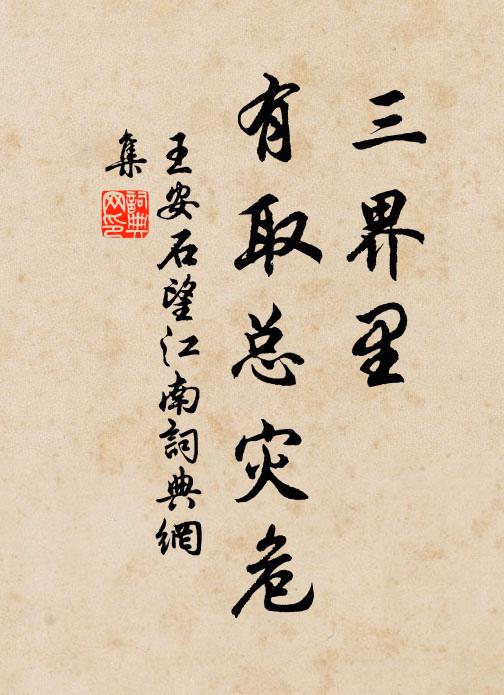 三界里
有取总灾危
王安石望江南詞典網
集
詞典
网印